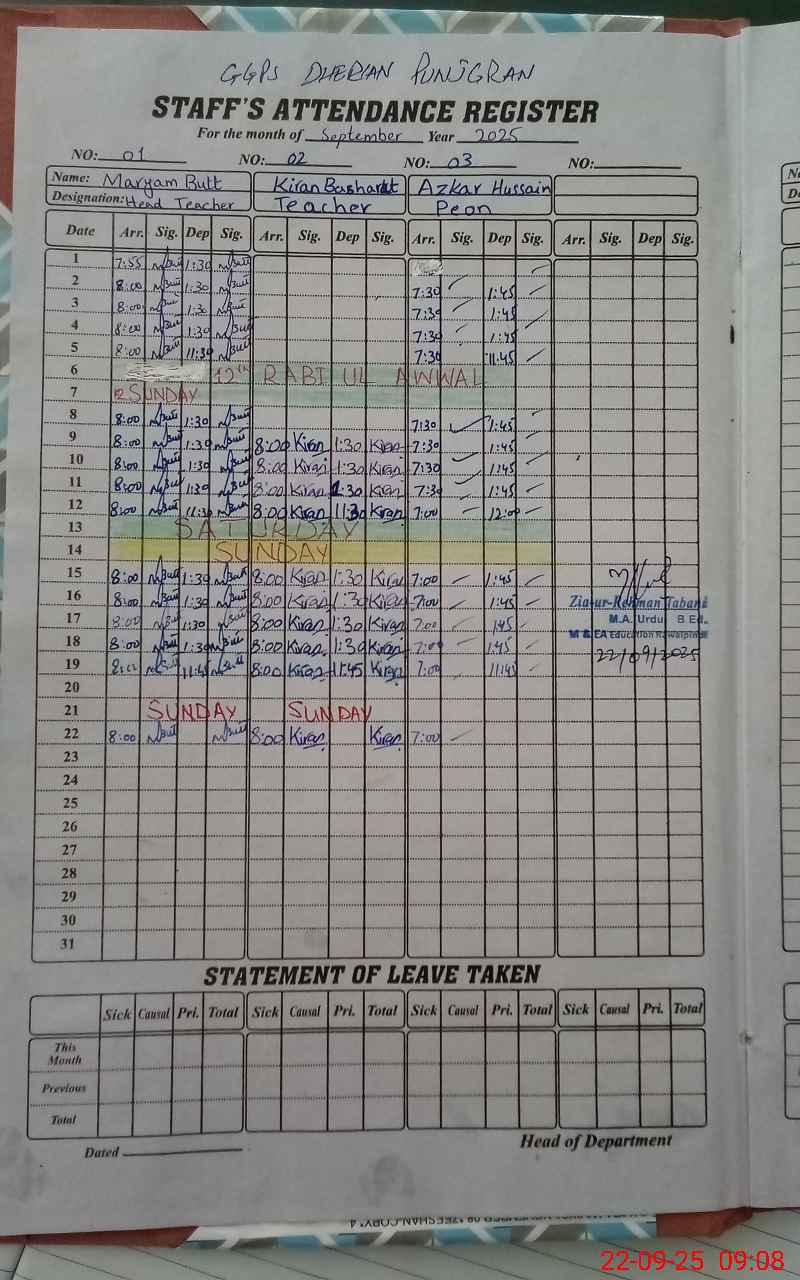 GGPS DHERIAN PUNJGRAN
STAFF'S ATTENDANCE REGISTER
For the month of September Year 2025
NO: 01 NO: 02 NO: 03 NO:
Name: Maryam Butt Kiran Bashardt Azkar Hussain
Designation: Head Teacher Teacher Peon
Date Arr. Sig. Dep Sig. Arr. Sig. Dep Sig. Arr. Sig. Dep Sig. Arr. Sig. Dep Sig.
1 7:55 MButt 1:30 MButt
2 8:00 MButt 1:30 MButt 7:30 1:45
3 8:00 MButt 1:30 MButt 7:30 1:45
4 8:00 MButt 1:30 MButt 7:30 1:45
5 8:00 MButt 11:30 MButt 7:30 11:45
6 12th RABI UL AWWAL
7 SUNDAY
8 8:00 MButt 1:30 MButt 7:30 1:45
9 8:00 MButt 1:30 MButt 8:00 Kiran 1:30 Kiran 7:30 1:45
10 8:00 MButt 1:30 MButt 8:00 Kiran 1:30 Kiran 7:30 1:45
11 8:00 MButt 1:30 MButt 8:00 Kiran 1:30 Kiran 7:30 1:45
12 8:00 MButt 11:30 MButt 8:00 Kiran 11:30 Kiran 7:00 12:00
13 SATURDAY
14 SUNDAY
15 8:00 MButt 1:30 MButt 8:00 Kiran 1:30 Kiran 7:00 1:45
16 8:00 MButt 1:30 MButt 8:00 Kiran 1:30 Kiran 7:00 1:45
Zia-ur-Rehman Tabani
17 8:00 MButt 1:30 MButt 8:00 Kiran 1:30 Kiran 7:00 1:45
M.A. Urdu B Ed.
18 8:00 MButt 1:30 MButt 8:00 Kiran 1:30 Kiran 7:00 1:45
M & EA Education Rawalpindi
22/09/2025
19 8:00 MButt 11:45 MButt 8:00 Kiran 11:45 Kiran 7:00 11:45
20
21 SUNDAY SUNDAY
22 8:00 MButt MButt 8:00 Kiran Kiran 7:00
23
24
25
26
27
28
29
30
31
STATEMENT OF LEAVE TAKEN
Sick Causal Pri. Total Sick Causal Pri. Total Sick Causal Pri. Total Sick Causal Pri. Total
This Month
Previous
Total
Dated Head of Department
22-09-25 09:08